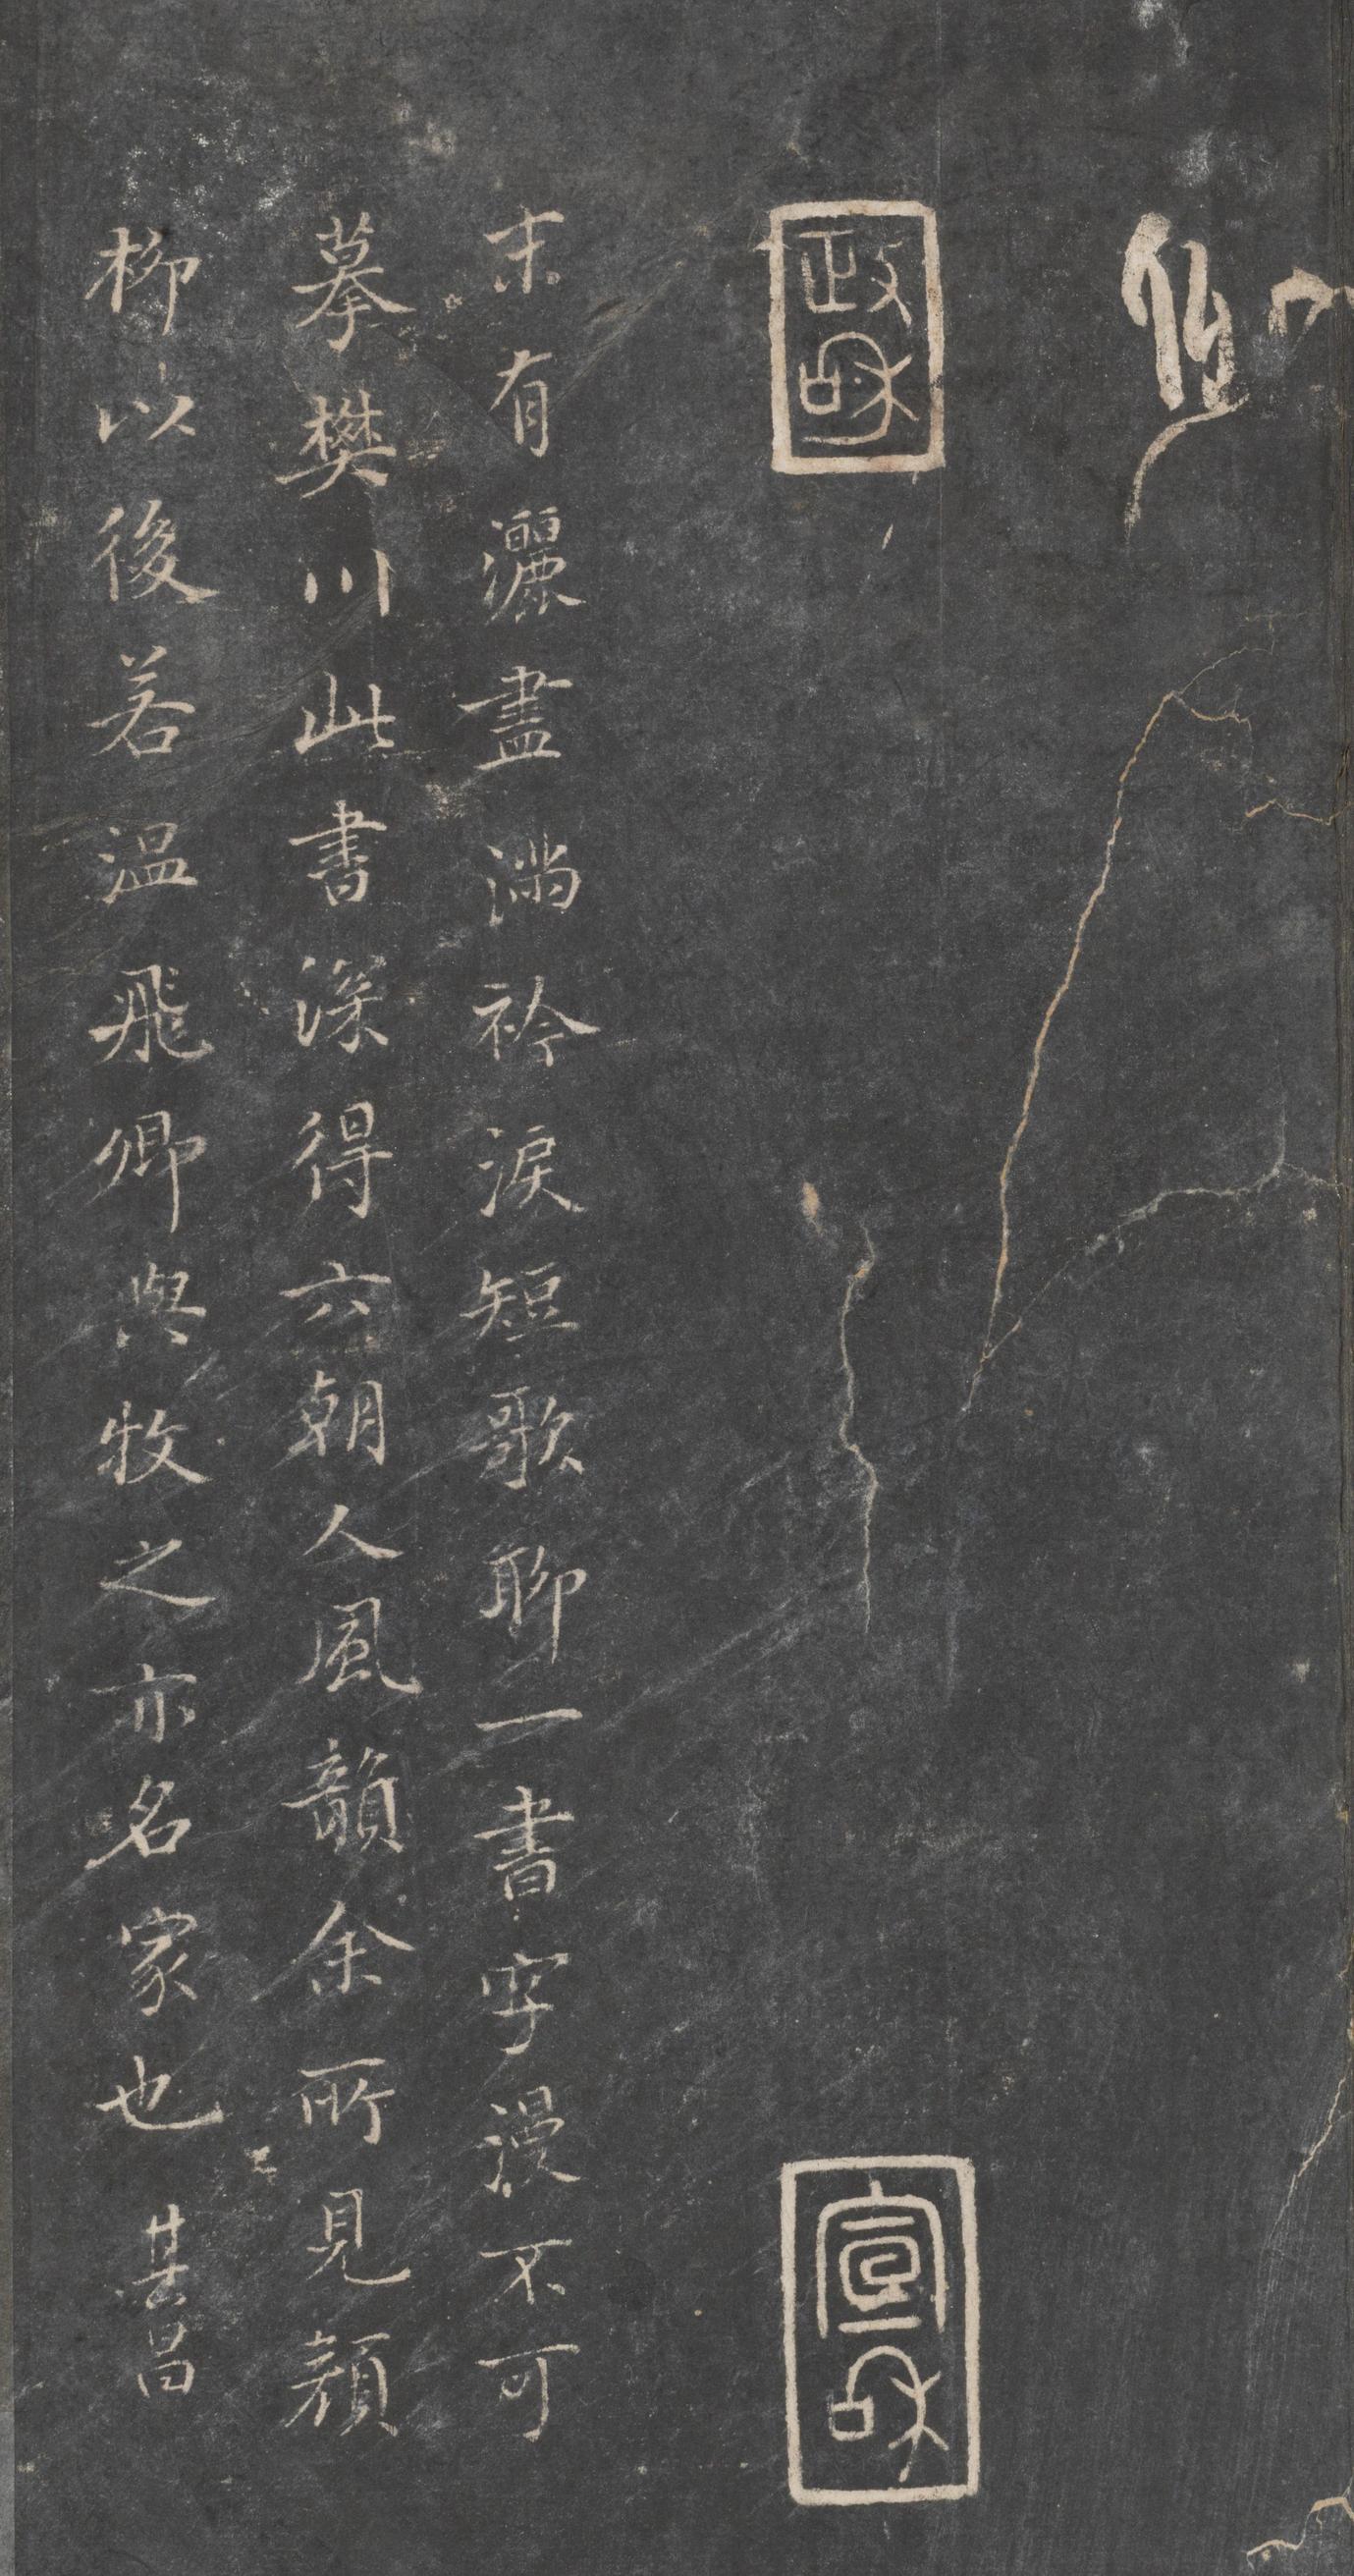 政和
宣和
末有灑盡滿衿淚短歌聊一書字漫不可
摹樊川此書深得六朝人風韻余所見顏
柳以後若温飛卿與牧之亦名家也 其昌